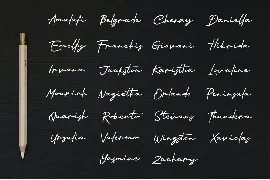 Amalfi Belgrade Cheray Daniella
Emilly Franchis Giovani Hibrida
Irvana Jackston Karistha Lavaline
Mourish Nagietta Orlando Peninsula
Quarish Roberto Stevens Thundera
Ursulia Valerian Wingston Xaviolas
Yasmine Zachary